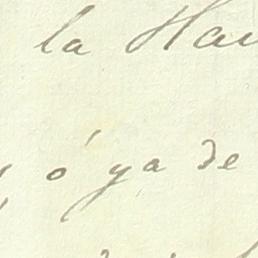 la Ha
ó ya de